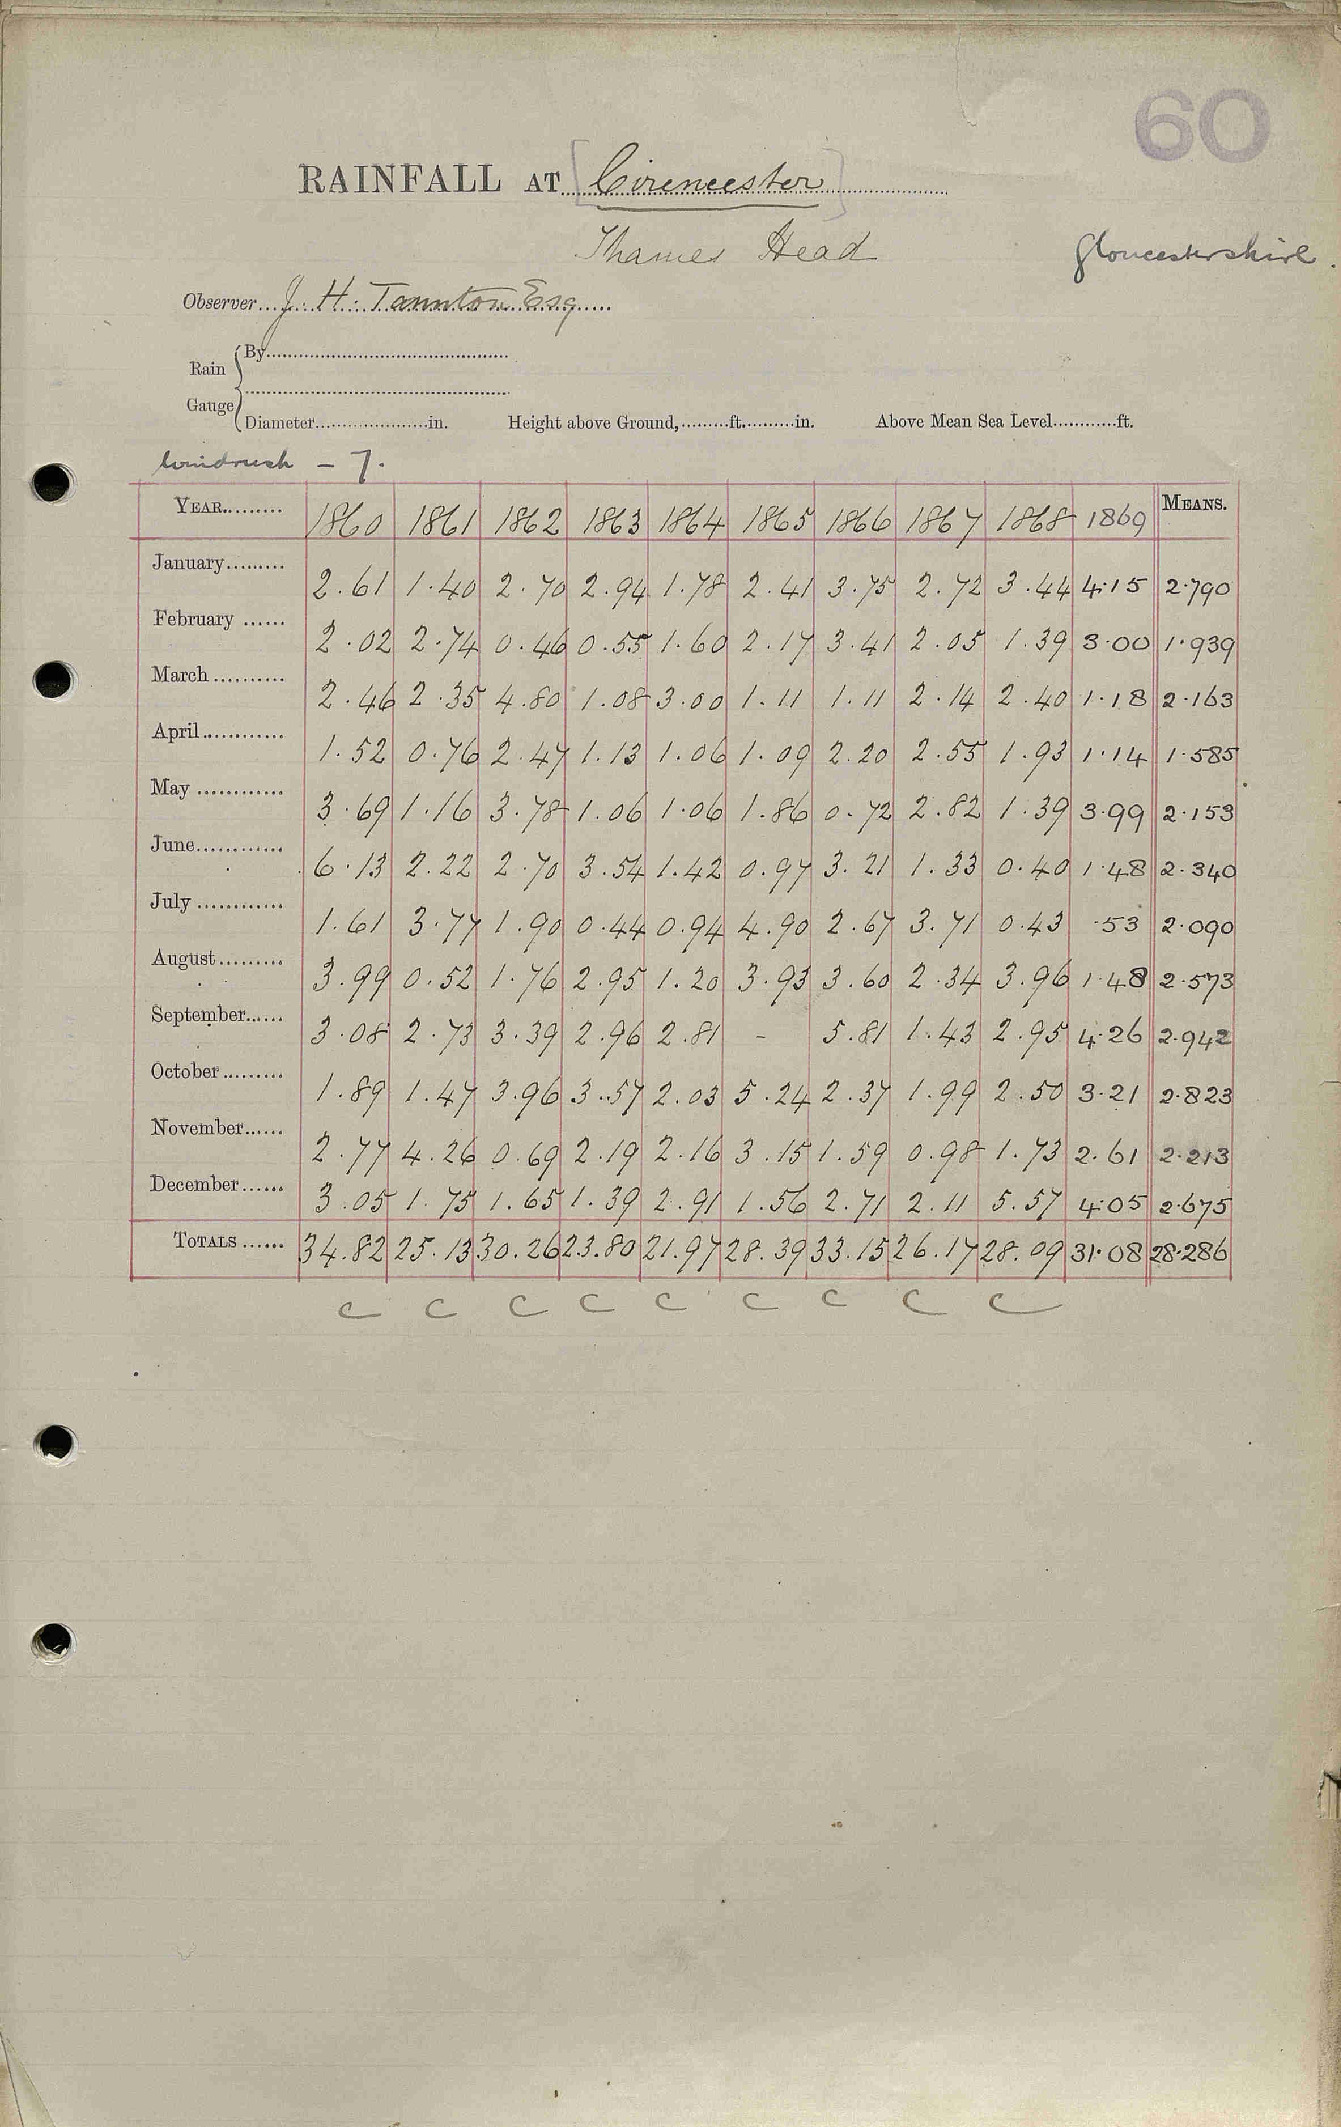 60
RAINFALL AT [Cirencester]
Thames Head
Gloucestershire.
Observer J. H. Taunton Esq
Rain Gauge
By
Diameter in. Height above Ground, ft. in. Above Mean Sea Level ft.
Windrush - 7.
YEAR 1860 1861 1862 1863 1864 1865 1866 1867 1868 1869 MEANS.
January 2.61 1.40 2.70 2.94 1.78 2.41 3.75 2.72 3.44 4.15 2.790
February 2.02 2.74 0.46 0.55 1.60 2.17 3.41 2.05 1.39 3.00 1.939
March 2.46 2.35 4.80 1.08 3.00 1.11 1.11 2.14 2.40 1.18 2.163
April 1.52 0.76 2.47 1.13 1.06 1.09 2.20 2.55 1.93 1.14 1.585
May 3.69 1.16 3.78 1.06 1.06 1.86 0.72 2.82 1.39 3.99 2.153
June 6.13 2.22 2.70 3.54 1.42 0.97 3.21 1.33 0.40 1.48 2.340
July 1.61 3.77 1.90 0.44 0.94 4.90 2.67 3.71 0.43 .53 2.090
August 3.99 0.52 1.76 2.95 1.20 3.93 3.60 2.34 3.96 1.48 2.573
September 3.08 2.73 3.39 2.96 2.81 - 5.81 1.43 2.95 4.26 2.942
October 1.89 1.47 3.96 3.57 2.03 5.24 2.37 1.99 2.50 3.21 2.823
November 2.77 4.26 0.69 2.19 2.16 3.15 1.59 0.98 1.73 2.61 2.213
December 3.05 1.75 1.65 1.39 2.91 1.56 2.71 2.11 5.57 4.05 2.675
TOTALS 34.82 25.13 30.26 23.80 21.97 28.39 33.15 26.17 28.09 31.08 28.286
C C C C C C C C C